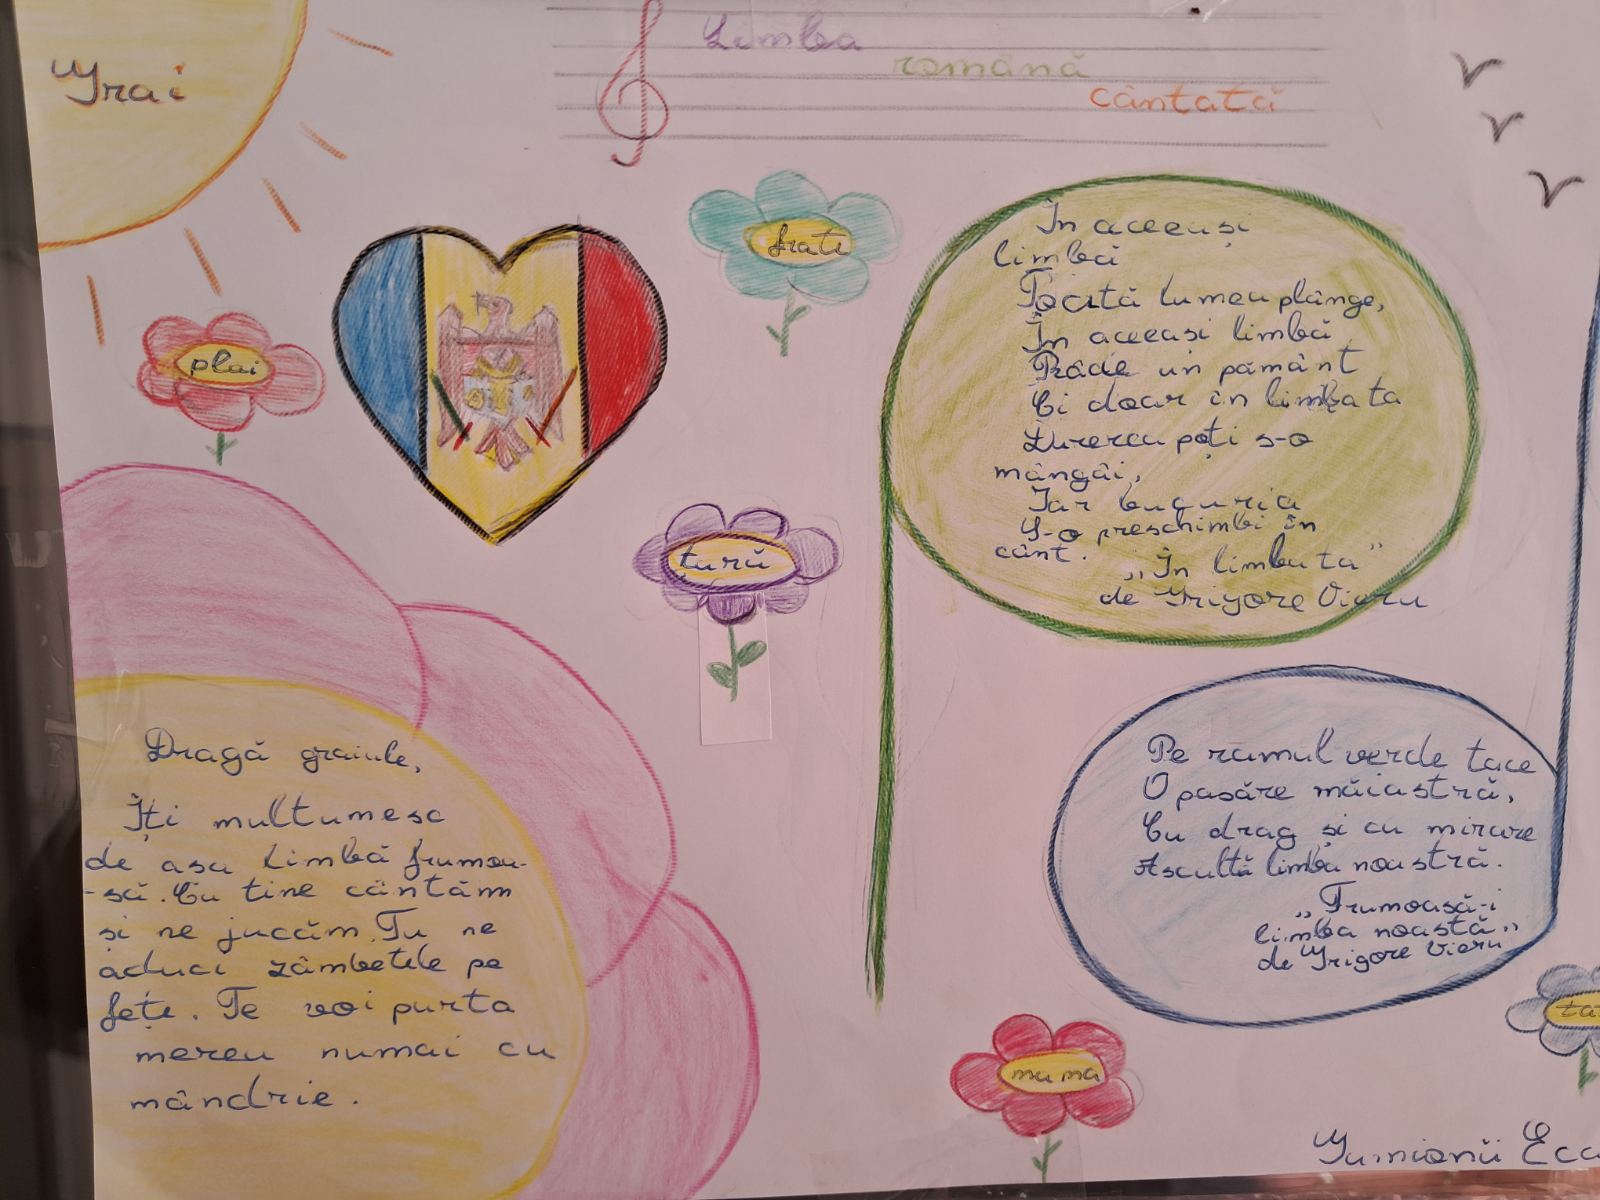 Grai
Limba
română
cântată
frate
plai
țară
În aceeași
limbă
Toată lumea plânge,
În aceeași limbă
Râde un pământ
Ci doar în limba ta
Durerea poți s-o
mângâi,
Iar bucuria
S-o preschimbi în
cânt.
„În limba ta”
de Grigore Vieru
Dragă graiule,
Îți multumesc
de asa limbă frumoa-
-să. Cu tine cântăm
și ne jucăm. Tu ne
aduci zâmbetele pe
fețe. Te voi purta
mereu numai cu
mândrie.
Pe ramul verde tace
O pasăre măiastră,
Cu drag și cu mirare
Ascultă limba noastră.
„Frumoasă-i
limba noastă”
de Grigore Vieru
mama